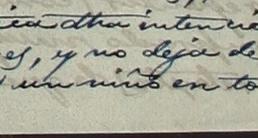 ica dha intenci
es, y no deja de
un niño en to